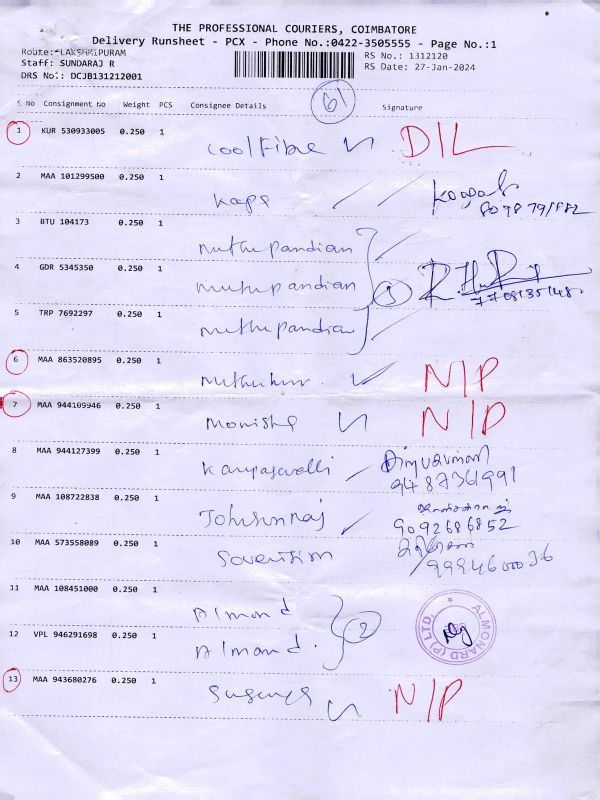 THE PROFESSIONAL COURIERS, COIMBATORE
Delivery Runsheet - PCX - Phone No.:0422-3505555 - Page No.:1
Route: LAKSHMIPURAM
Staff: SUNDARAJ R
DRS No.: DCJB131212001
RS No.: 1312120
RS Date: 27-Jan-2024
61
S No Consignment No Weight PCS Consignee Details Signature
1 KUR 530933005 0.250 1
Cool Fibre D/L
2 MAA 101299500 0.250 1
Kaps
3 BTU 104173 0.250 1
muthu pandian
4 GDR 5345350 0.250 1
muthu pandian 3
5 TRP 7692297 0.250 1
muthu pandian
6 MAA 863520895 0.250 1
N/P
7 MAA 944109946 0.250 1
Monisha N/P
8 MAA 944127399 0.250 1
9487361991
9 MAA 108722838 0.250 1
Johnsunraj
9092686852
10 MAA 573558089 0.250 1
11 MAA 108451000 0.250 1
Almond
12 VPL 946291698 0.250 1
Almond 2
ALMONARD (P) LTD.
13 MAA 943680276 0.250 1
N/P